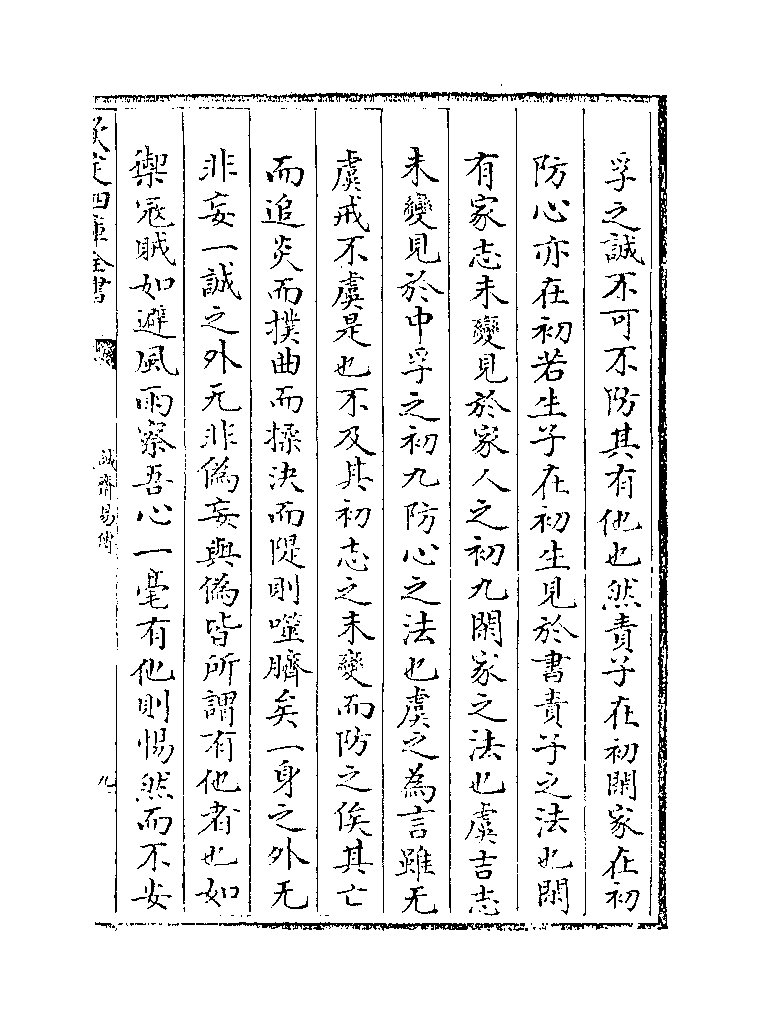 孚之誠不可不防其有他也然責子在初閑家在初
防心亦在初若生子在初生見於書責子之法也閑
有家志未變見於家人之初九閑家之法也虞吉志
未變見於中孚之初九防心之法也虞之為言雖无
虞戒不虞是也不及其初志之未變而防之俟其亡
而追炎而撲曲而揉決而隄則噬臍矣一身之外无
非妄一誠之外无非偽妄與偽皆所謂有他者也如
禦冦賊如避風雨察吾心一毫有他則惕然而不安
欽定四庫全書
誠齋易傳
九